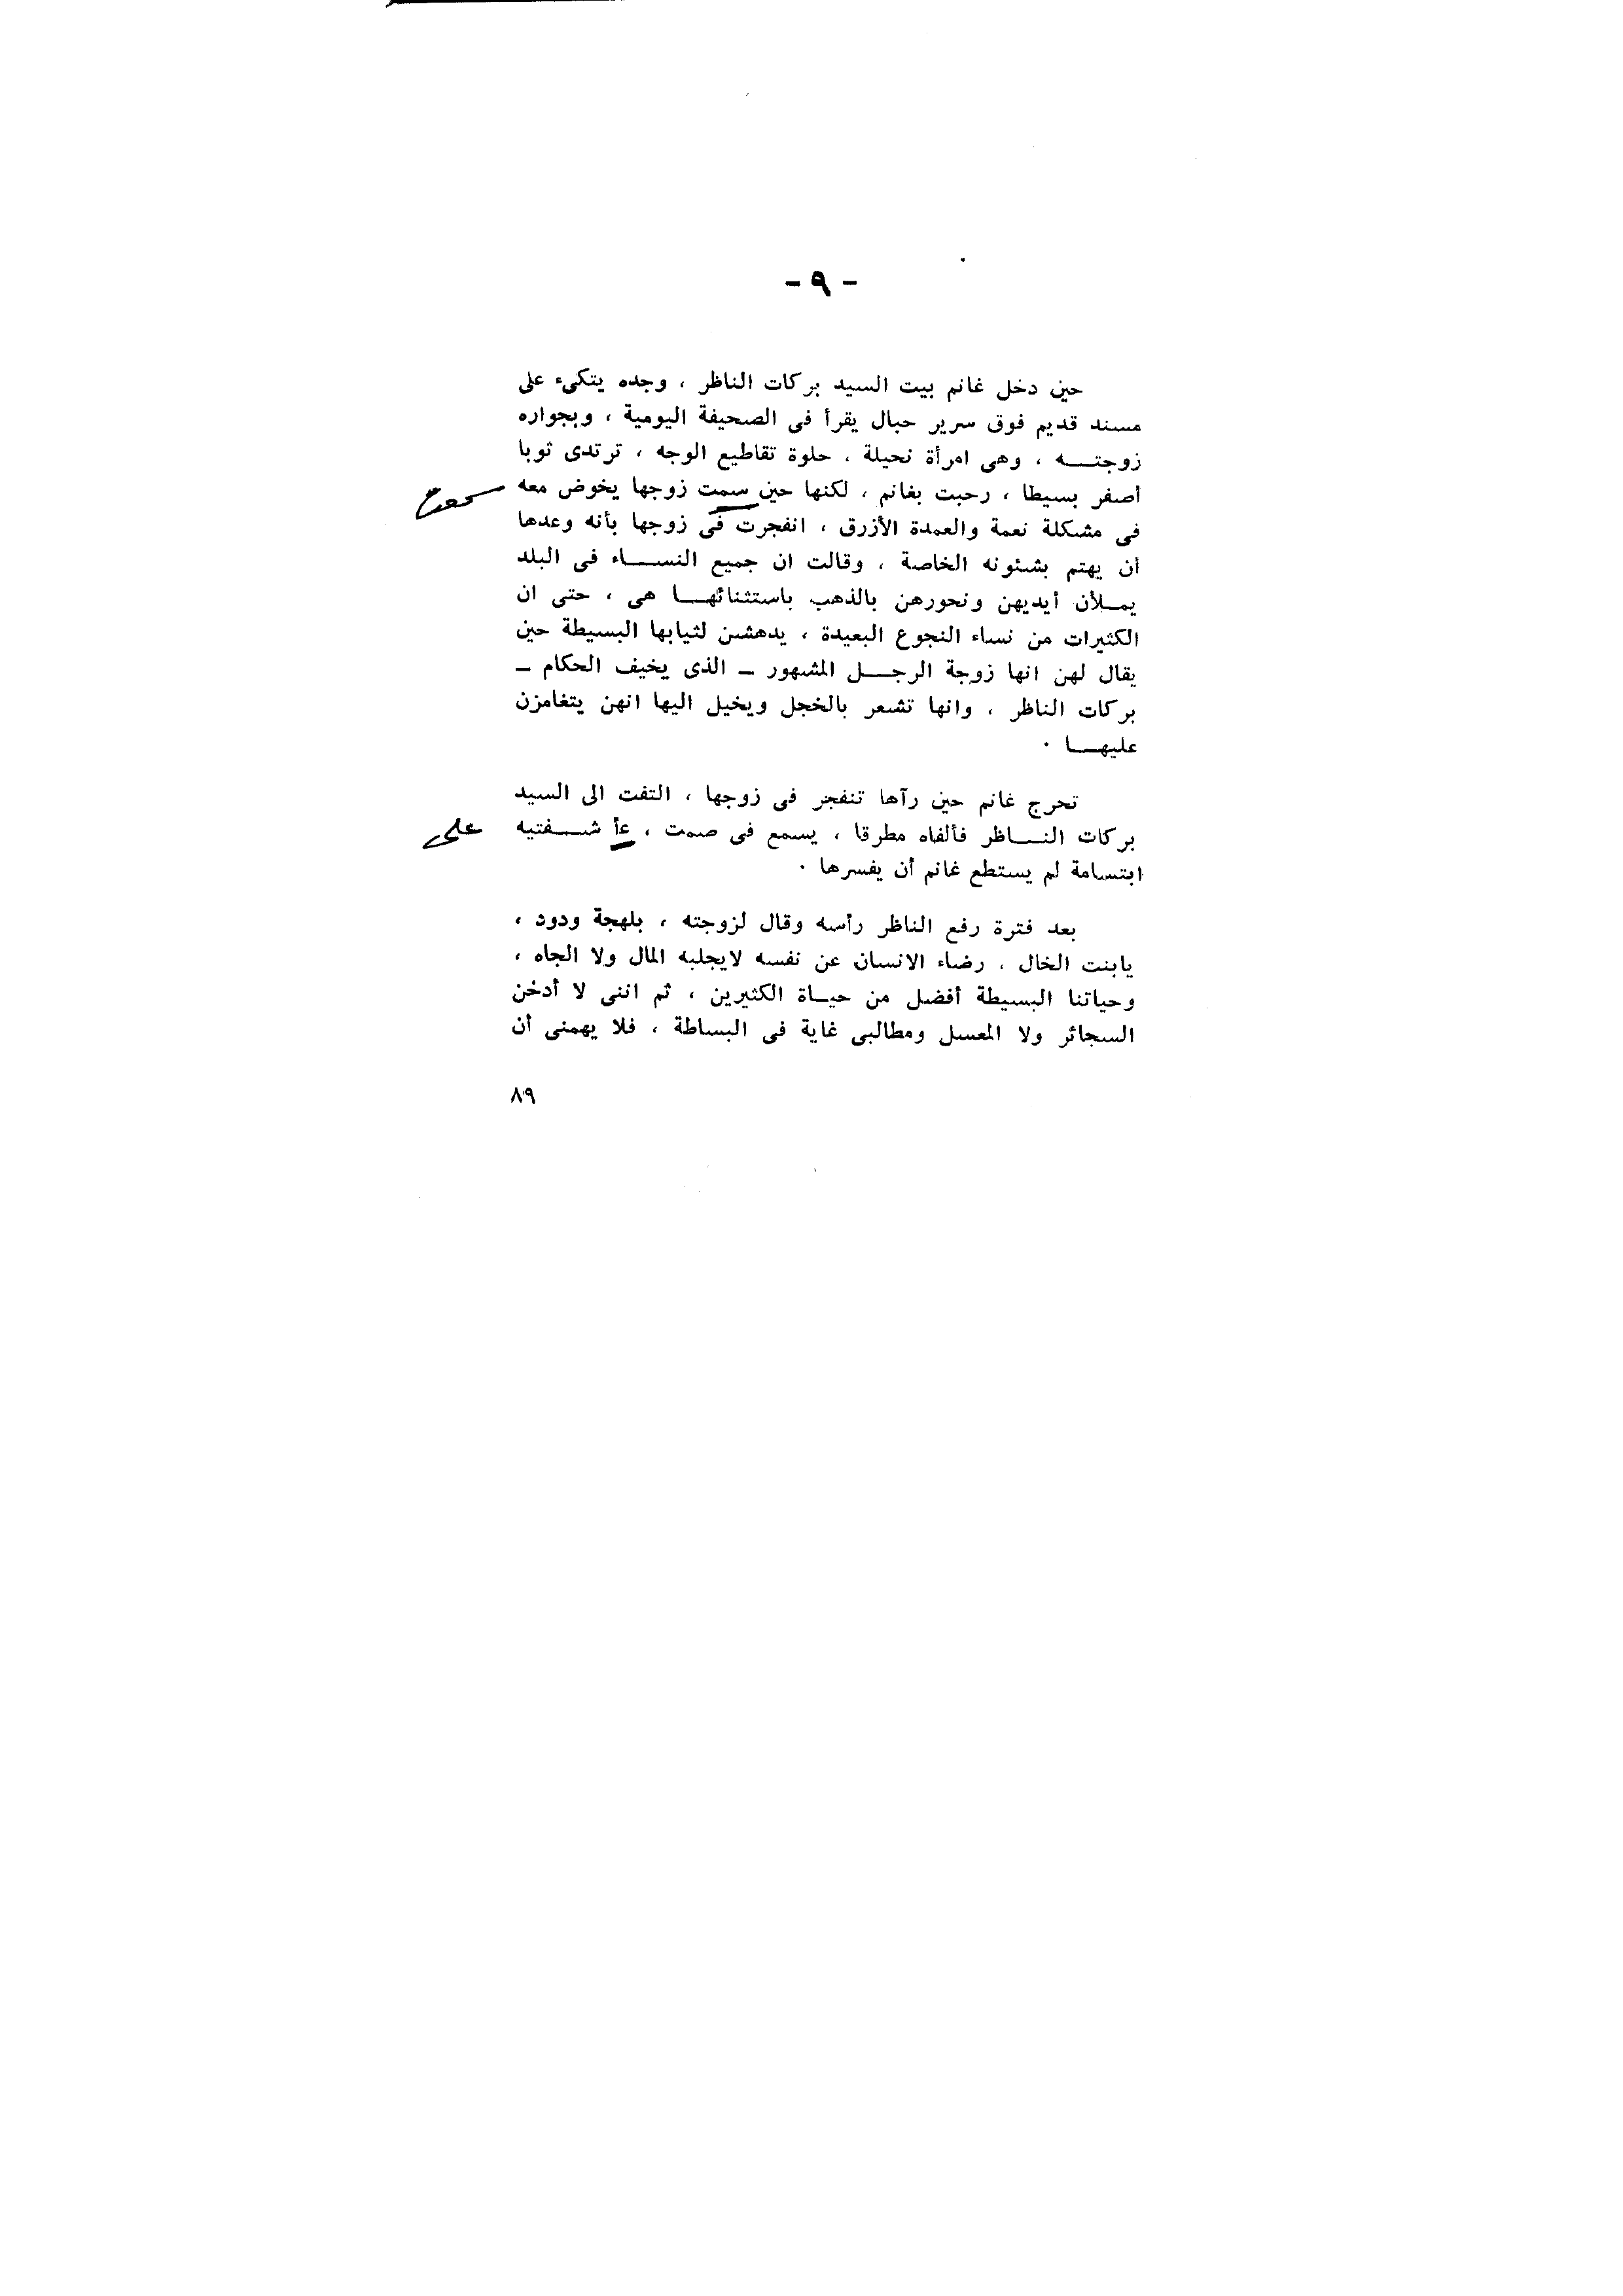 - ٩ -
حين دخل غانم بيت السيد بركات الناظر ، وجده يتكىء على
مسند قديم فوق سرير حبال يقرأ فى الصحيفة اليومية ، وبجواره
زوجتـــه ، وهى امرأة نحيلة ، حلوة تقاطيع الوجه ، ترتدى ثوبا
أصفر بسيطا ، رحبت بغانم ، لكنها حين سمت زوجها يخوض معه
سمعت
فى مشكلة نعمة والعمدة الأزرق ، انفجرت فى زوجها بأنه وعدها
أن يهتم بشئونه الخاصة ، وقالت ان جميع النســـاء فى البلد
يمــلأن أيديهن ونحورهن بالذهب باستثنائهـــا هى ، حتى ان
الكثيرات من نساء النجوع البعيدة ، يدهشن لثيابها البسيطة حين
يقال لهن انها زوجة الرجـــل المشهور ــ الذى يخيف الحكام ــ
بركات الناظر ، وانها تشعر بالخجل ويخيل اليها انهن يتغامزن
عليهـــا ·
تحرج غانم حين رآها تنفجر فى زوجها ، التفت الى السيد
بركات النـــاظر فألفاه مطرقا ، يسمع فى صمت ، عأ شـــفتيه
على
ابتسامة لم يستطع غانم أن يفسرها ·
بعد فترة رفع الناظر رأسه وقال لزوجته ، بلهجة ودود ،
يابنت الخال ، رضاء الانسان عن نفسه لايجلبه المال ولا الجاه ،
وحياتنا البسيطة أفضل من حيــاة الكثيرين ، ثم اننى لا أدخن
السجائر ولا المعسل ومطالبى غاية فى البساطة ، فلا يهمنى أن
٨٩